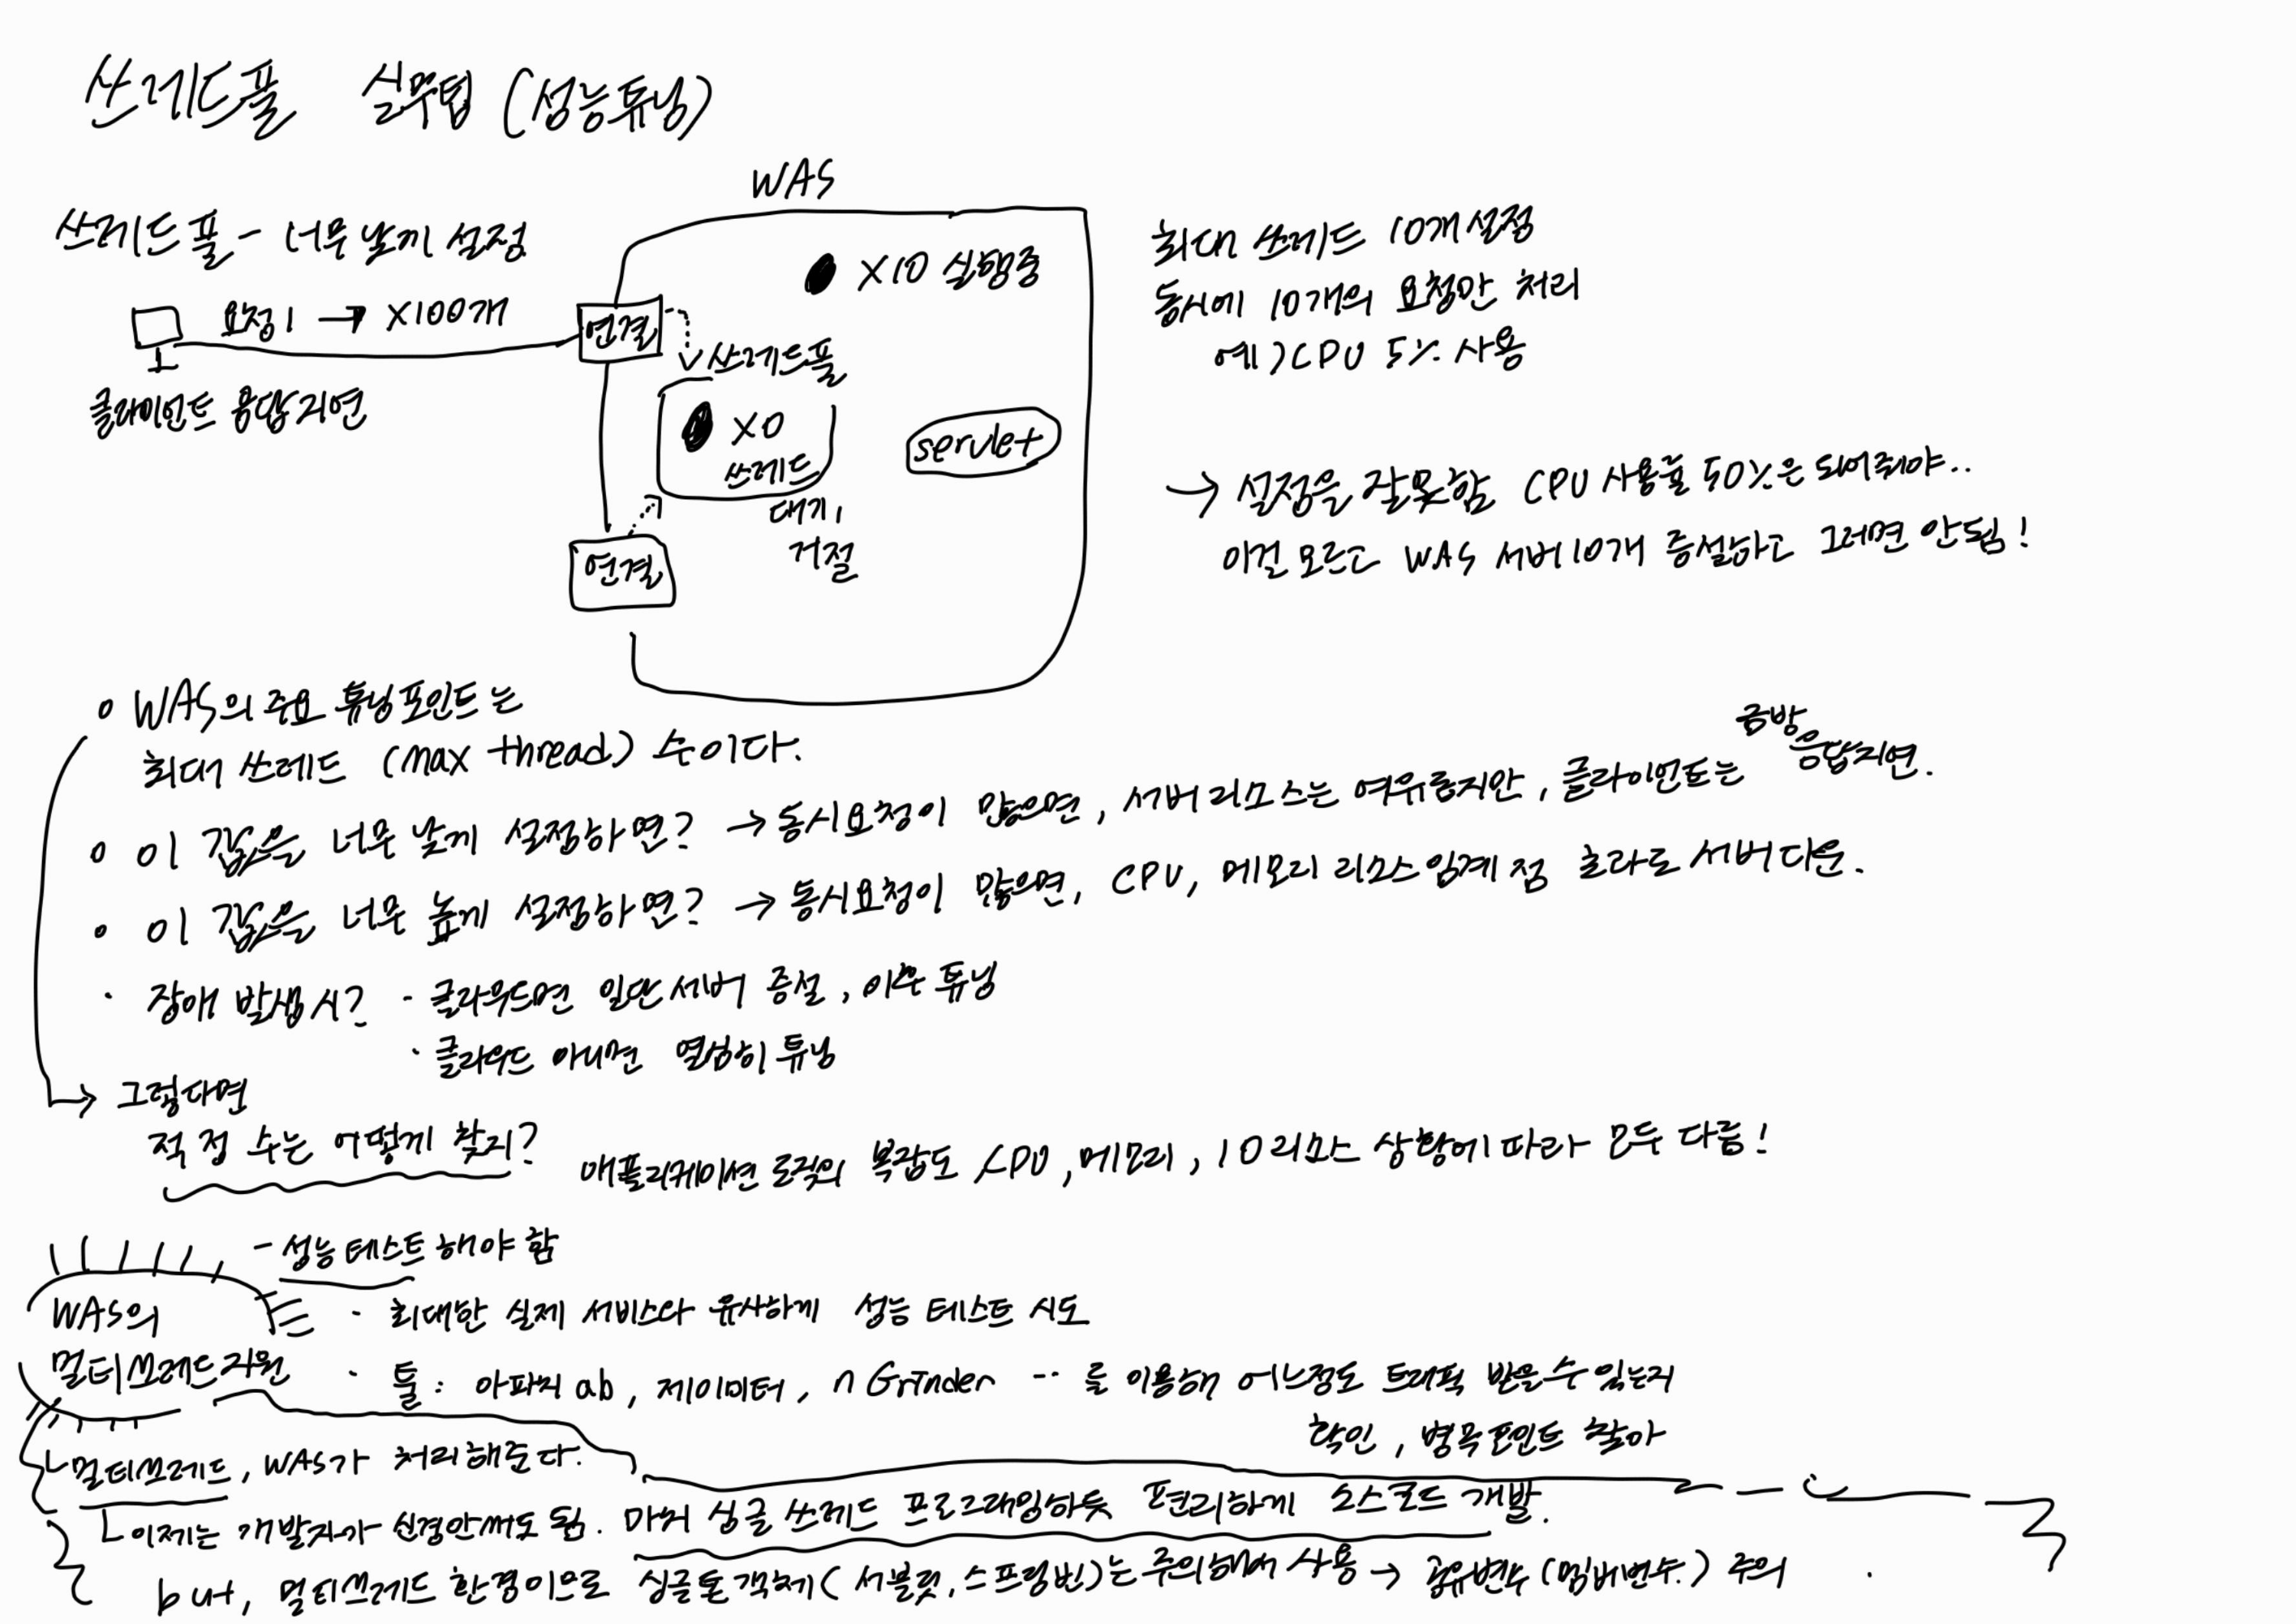 쓰레드풀 실무팁 (성능튜닝)
WAS
쓰레드 풀 - 너무 낮게 설정
x10 실행중
요청1 → x100개
연결
쓰레드풀
클라이언트 응답지연
x0
쓰레드
servlet
대기,
거절
연결
최대 쓰레드 10개 설정
동시에 10개의 요청만 처리
예) CPU 5% 사용
→ 설정을 잘못함 CPU 사용률 50%은 되어줘야..
이걸 모르고 WAS 서버10개 증설하고 그러면 안됨!
WAS의 주요 튜닝포인트는
최대 쓰레드 (max thread) 수이다.
이 값을 너무 낮게 설정하면? → 동시요청이 많으면, 서버 리소스는 여유롭지만, 클라이언트는 금방 응답지연.
이 값을 너무 높게 설정하면? → 동시요청이 많으면, CPU, 메모리 리소스 임계점 초과로 서버다운.
· 장애 발생시? - 클라우드면 일단 서버 증설, 이후 튜닝
· 클라우드 아니면 열심히 튜닝
→ 그렇다면
적정 수는 어떻게 찾지? 애플리케이션 로직의 복잡도, CPU, 메모리, IO리소스 상황에 따라 모두 다름!
- 성능 테스트 해야 함
WAS의
멀티쓰레드 지원
· 최대한 실제 서비스와 유사하게 성능 테스트 시도
· 툴 : 아파치 ab, 제이미터, nGrinder .. 를 이용해 어느정도 트래픽 받을수 있는지
확인, 병목포인트 찾아
멀티쓰레드, WAS가 처리해준다.
이제는 개발자가 신경안써도 됨. 마치 싱글 쓰레드 프로그래밍하듯 편리하게 소스코드 개발.
but, 멀티쓰레드 환경이므로 싱글톤 객체( 서블릿, 스프링빈)는 주의해서 사용 → 공유변수 (멤버변수.) 주의